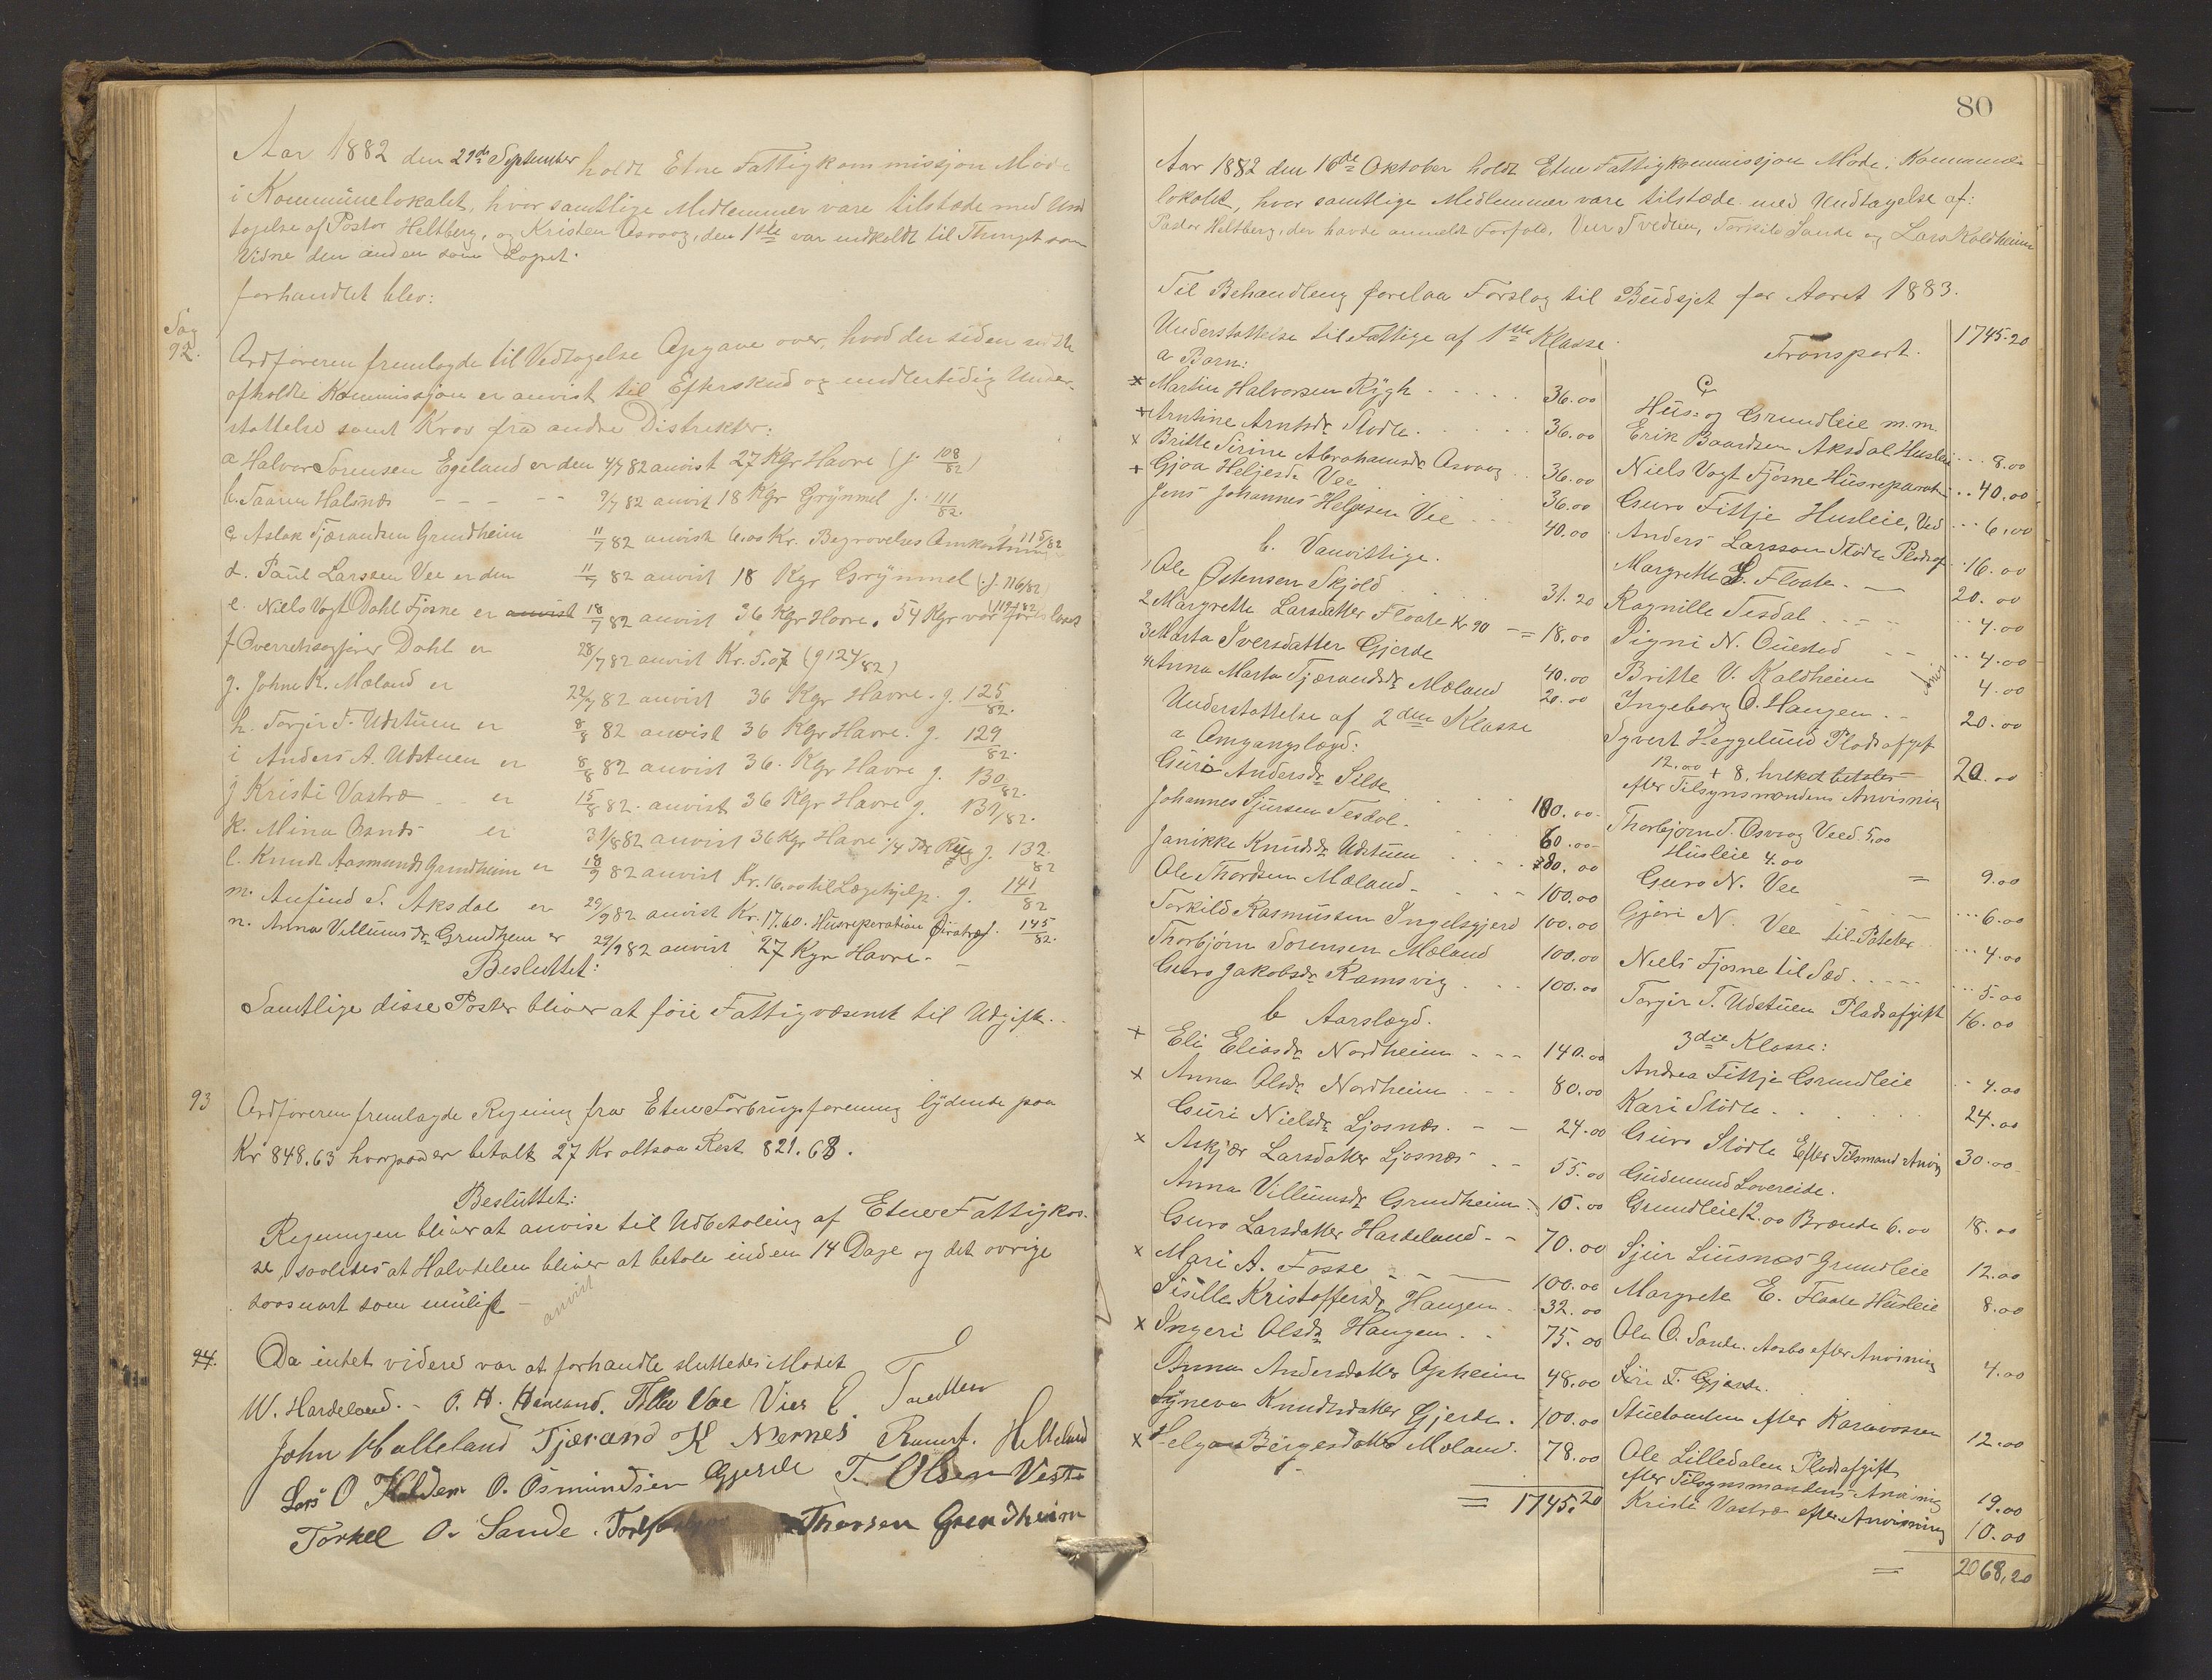 Aar 1882 den 29de September holdt Etne Fattigkommissjon Møde
i Kommunelokalet, hvor samtlige Medlemmer vare tilstæde med Und
tagelse af Pastor Heltberg, og Kristen Osvaag, den 1ste var indkaldt til Thinget som
Vidne den anden som Lagret.
forhandlet blev:
Sag
92.
Ordføreren fremlagde til Vedtagelse Opgave over, hvad der siden sidst
afholdte Kommissjon er anvist til Efterskud og midlertidig Under-
støttelse samt Krav fra andre Distrikter:
a Halvor Sørensen Egeland er den 4/7 82 anvist 27 Kgr Havre (J. 108/82)
b. Taaran Halsnæs - - - - - 9/7 82 anvist 18 Kgr Grynmel J. 111/82.
c Aslak Tjærandsen Grindheim 11/7 82 anvist 6.00 Kr. Begravelses Omkostning 115/82
d. Paul Larssen Vee er den 11/7 82 anvist 18 Kgr Grynmel (J. 116/82)
e. Niels Vogt Dahl Fjøsne er anvist 18/7 82 anvist 36 Kgr Havre. 54 Kgr var (119/82)
f Overretssagfører Dahl er 28/7 82 anvist Kr. 5.07 (g 124/82)
g. Johne K. Mæland er 22/7 82 anvist 36 Kgr Havre. g. 125/82.
h. Torgir T. Udstuen er 8/8 82 anvist 36 Kgr Havre. g. 129/82.
i Anders A. Udstuen er 8/8 82 anvist 36. Kgr Havre g. 130/82.
j Kristi Vastrø - er 15/8 82. anvist 36 Kgr Havre g. 131/82.
k. Mina Osnes er 31/8 82 anvist 36 Kgr Havre 1/4 Tde Rug g. 132/82
l. Knudt Aasmunds Grindheim er 18/9 82 anvist Kr. 16.00 til Lægehjelp. g. 141/82
m. Anfind S. Aksdal er 29/9 82 anvist Kr. 17.60. Husreperation J. 145/82.
n. Anna Villumsdr Grindhem er 29/9 82 anvist 27 Kgr Havre. -
Besluttet:
Samtlige disse Poster bliver at føie Fattigvæsenet til Udgift. -
93 Ordføreren fremlagde Regning fra Etne Forbrugsforening lydende paa
Kr 848.63 hvorpaa er betalt 27 Kr altsaa Rest 821.63.
Besluttet:
Regningen bliver at anvise til Udbetaling af Etne Fattigkas-
se, saaledes at Halvdelen bliver at betale inden 14 Dage og det øvrige
saasnart som muligt -
anvist
94. Da intet videre var at forhandle sluttedes Mødet
W. Hardeland. - O. H. Hæland. Vee Vier E. Tvedten
John Halleland Tjærand K Mernes Helleland
Lars O Kalden O. Osmundsen Gjerde T. Olsen Veste
Torkel O. Sande. Thorsen Grendheim
80
Aar 1882 den 16de Oktober holdt Etne Fattigkommissjon Møde i Kommune-
lokalet, hvor samtlige Medlemmer vare tilstæde med Undtagelse af:
Pastor Heltberg, der havde anmeldt Forfald, Vier Tvedten, Torkild Sande og Lars Kaldheim
Til Behandling forelaa Forslag til Budsjet for Aaret 1883.
Understøttelse til Fattige af 1ste Klasse
a Børn:
x Martin Halvorsen Rygh . . . . . 36.00
x Arntine Arntsdr Stødle . . . . . 36.00
x Britte Serine Abrahamsdr Osvaag . . 36.00
+ Gjøa Heljesdr Vee . . . 36.00
Jens Johannes Helgesen Vee . . . 40.00
b. Vanvittige.
1 Ole Østensen Skjold . . . . . 31.20
2 Margrethe Larsdatter Floate Kr 90 - = 18.00
3 Marta Iversdatter Gjerde 40.00
4 Anna Marta Tjærandsdr Mæland 20.00
Understøttelse af 2den Klasse
a Omgangslægd:
Guri Andersdr Silde . . . 100.00.
Johannes Sjursen Tesdal. . . . 60.00-
Janikke Knudsdr Udstuen . . . . 80.00
Ole Thordsen Mæland - - - - 100.00
Torkild Rasmussen Ingelsgjerd 100.00
Thorbjørn Sørensen Mæland 100.00
Guro Jakobsdr Ramsvig . . . 100.00
b Aarslægd.
x Eli Eliasdr Nordheim - - - 140.00
x Anna Olsdr Nordheim - - - 80.00
Guri Nielsdr Ljosnæs. - - 24.00
x Askjær Larsdatter Ljosnæs - - 55.00
Anna Villumsdr Grindheim 15.00
Guro Larsdatter Hardeland - - 70.00
x Mari A. Fosse - - — 100.00
Sisille Kristoffersdr Haugen - 32.00
x Ingeri Olsdr Haugen. - 75.00
Anna Andersdatter Opheim 48.00
Syneva Knudsdatter Gjerde. 100.00
x Helga Børgesdatter Mæland. 78.00
= 1745.20
Transport. 1745.20
c
Hus- og Grundleie m.m.
Erik Baardsen Aksdal Husleie . . . 8.00
Niels Vogt Fjøsne Husreparat . . 40.00
Guro Fittje Husleie, Ved . . . 6.00
Anders Larsson Stødle Pladsaf . . 16.00
Margrethe L. Floate - — 20.00
Ragnille Tesdal . . . . 4.00
Signi N. Ouestad - - . . 4.00
Britte V. Kaldheim 4.00
Ingeborg O. Haugen. - 20.00
Syvert Heggelund Pladsafgift
12.00 + 8. hvilket betales 20.00
efter Tilsynsmandens Anvisning
Thorbjørn T. Osvaag Veed 5.00
Husleie 4.00 = 9.00
Guro N. Vee - - — . . . 6.00
Gjøri N. Vee til Poteter . . . 4.00
Niels Fjøsne til Sæd . . . . . . . . 5.00
Torgir T. Udstuen Pladsafgift 16.00
3die Klasse:
Andrea Fittje Grundleie . . 4.00
Kari Stødle . . . . . . 24.00
Guro Stødle Efter Tilsmands Anvis 30.00-
Gudmund Lovereide.
Grundleie 12.00 Brænde 6.00 18.00
Sjur Liusnæs Grundleie 12.00
Margrete E. Floate Husleie 8.00
Ole O. Sande. Aasbo efter Anvisning 4.00
Siri T. Gjærde.
Stuelanden efter Karavossen 12.00
Ole Lilledalen Pladsafgift
efter Tilsynsmandens Anvisning 19.00
Kristi Vastrø efter Anvisning 10.00
= 2068,20